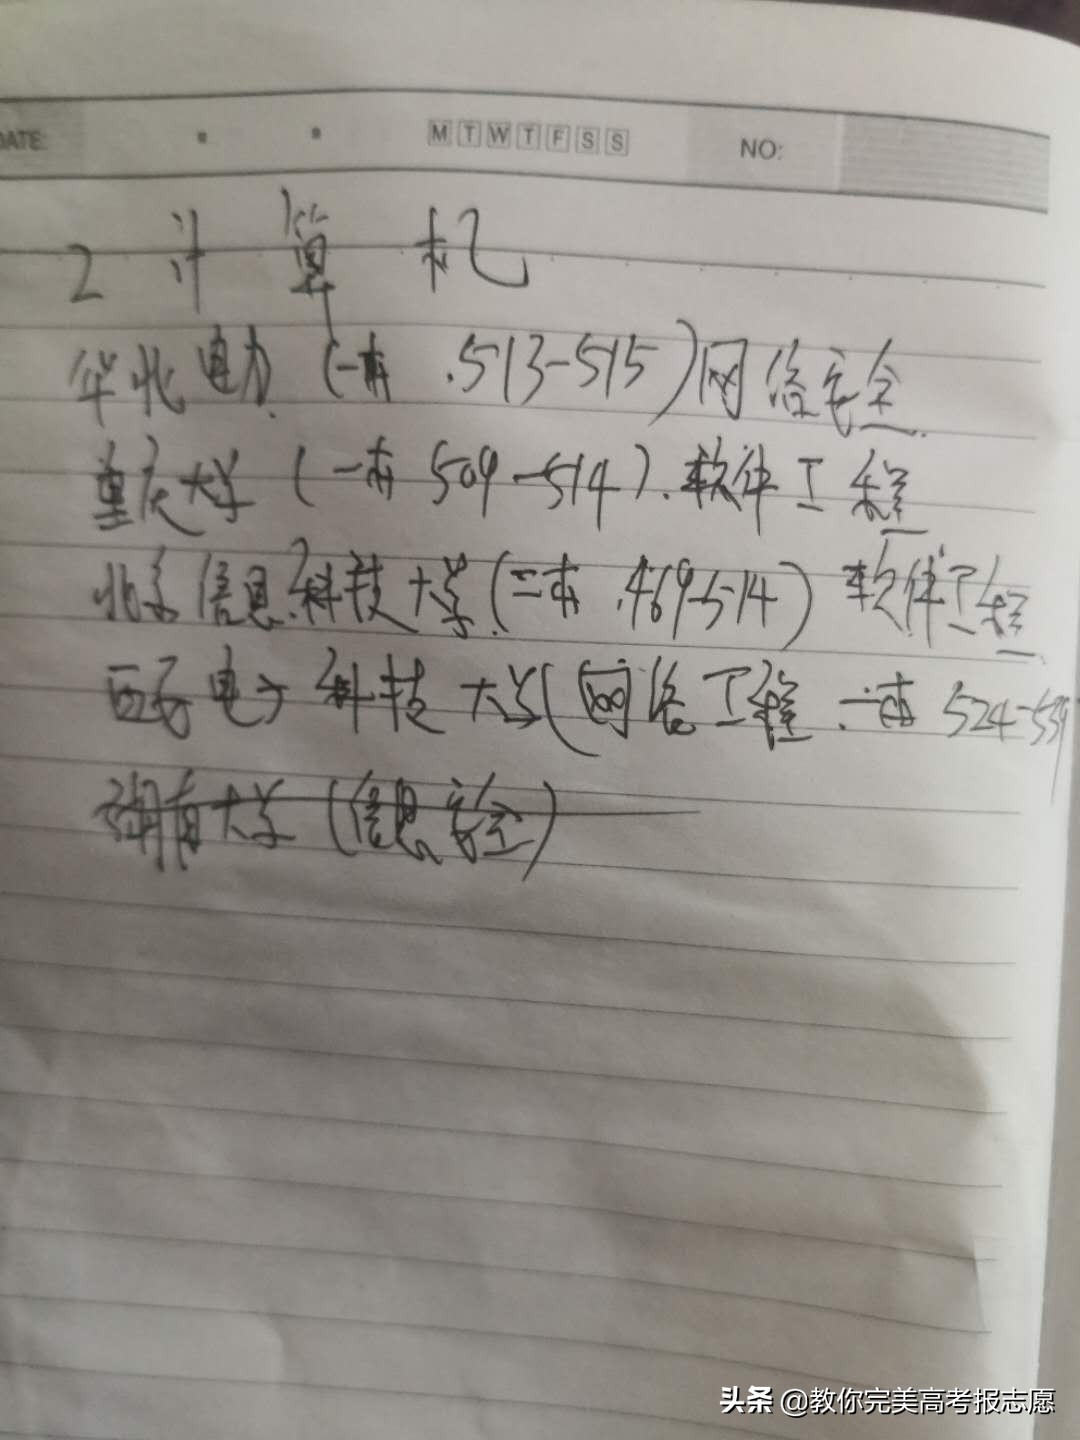 DATE: M T W T F S S NO:
2 计算机
华北电力(一本.513-515)网络安全.
重庆大学(一本 509-514).软件工程
北京信息科技大学.(二本.469-514)软件工程
西安电子科技大学(网络工程.一本 524-539
湖南大学(信息安全)
头条 @教你完美高考报志愿